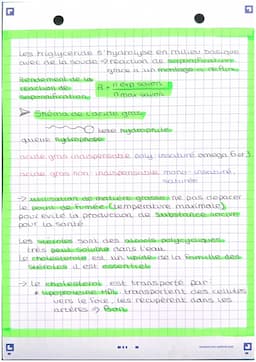 Les triglyceride s'hydrolyse en milieu basique
avec de la soude → réaction de saponification
grace a un montage a reflux
Rendement de la
réaction de
saponification
R = n exp savon
n max savon
➤ Shéma de l'acide gras
tete hydrophile
queue hydrophobe
acide gras indispensable poly insaturé omega 6 or 3
acide gras non indispensable mono-insaturé
saturée
→ utilisation de matière grasse: ne pas depacer
le point de fumée (temperature maximale)
pour evité la production de substance nocive
pour la santé
Les steroles sont des alcools polycycliques
très peut soluble dans l'eau.
Le cholesterole est un lipide de la famille des
steroles il est essentiel
→ Le cholesterol est transporté par
lipoproteine HDL transportent des cellules
vers le foie, les récupèrent dans les
artères → Bon